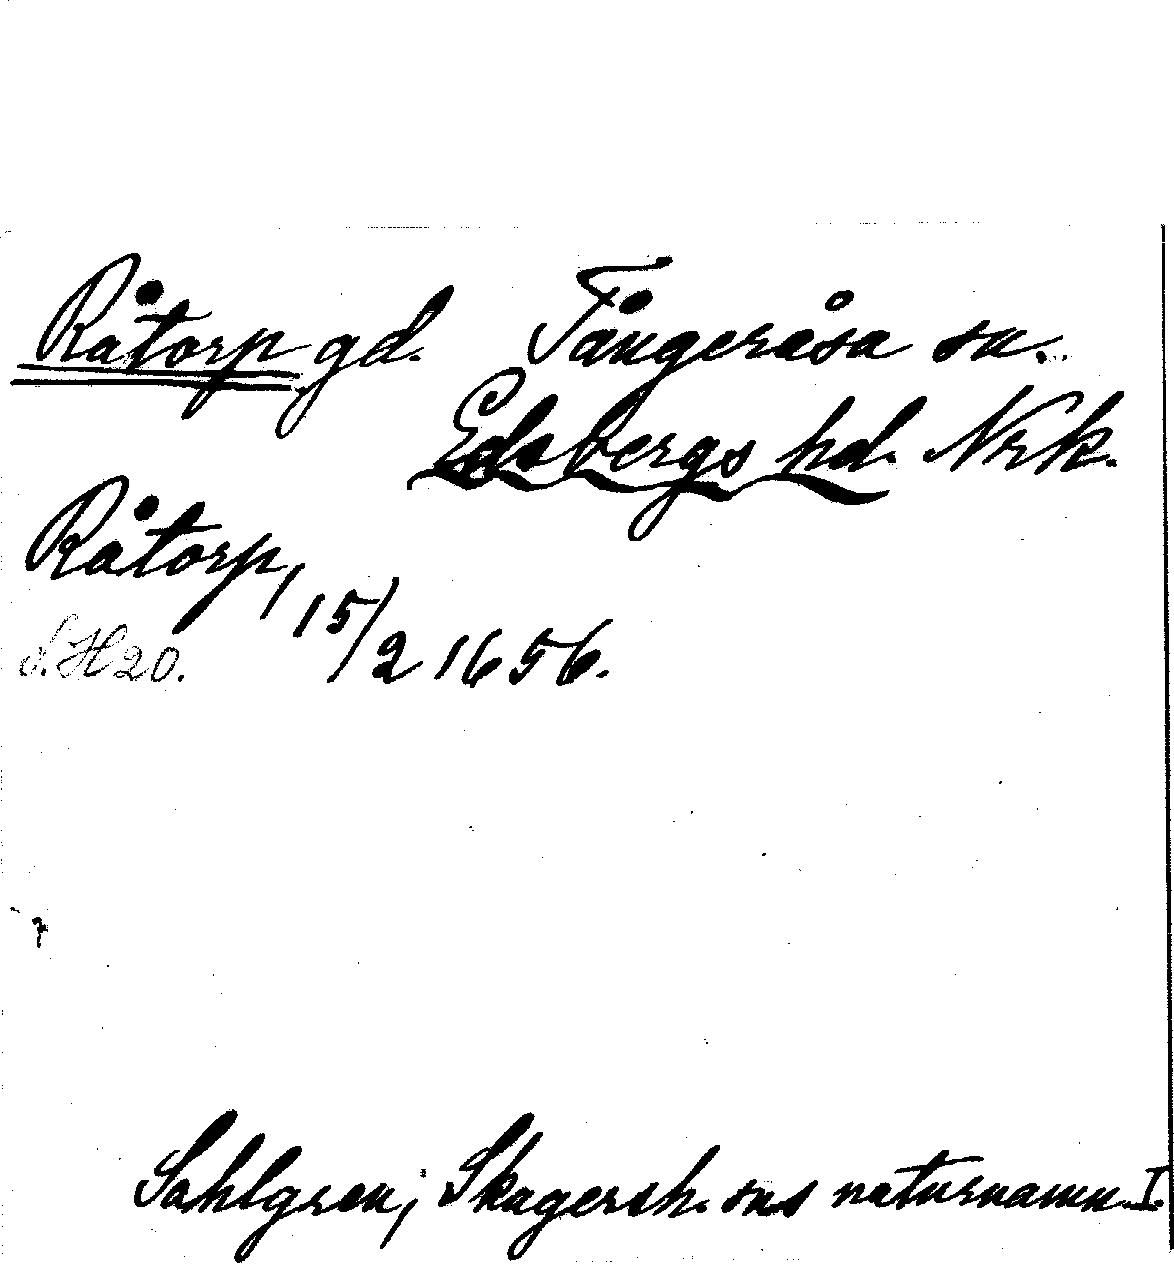 Råtorp gd. Tångeråsa sn.
Edsbergs hd. Nrk.
Råtorp, 15/2 1656.
S.H 20.
Sahlgren; Skagersh. sns naturnamn I.